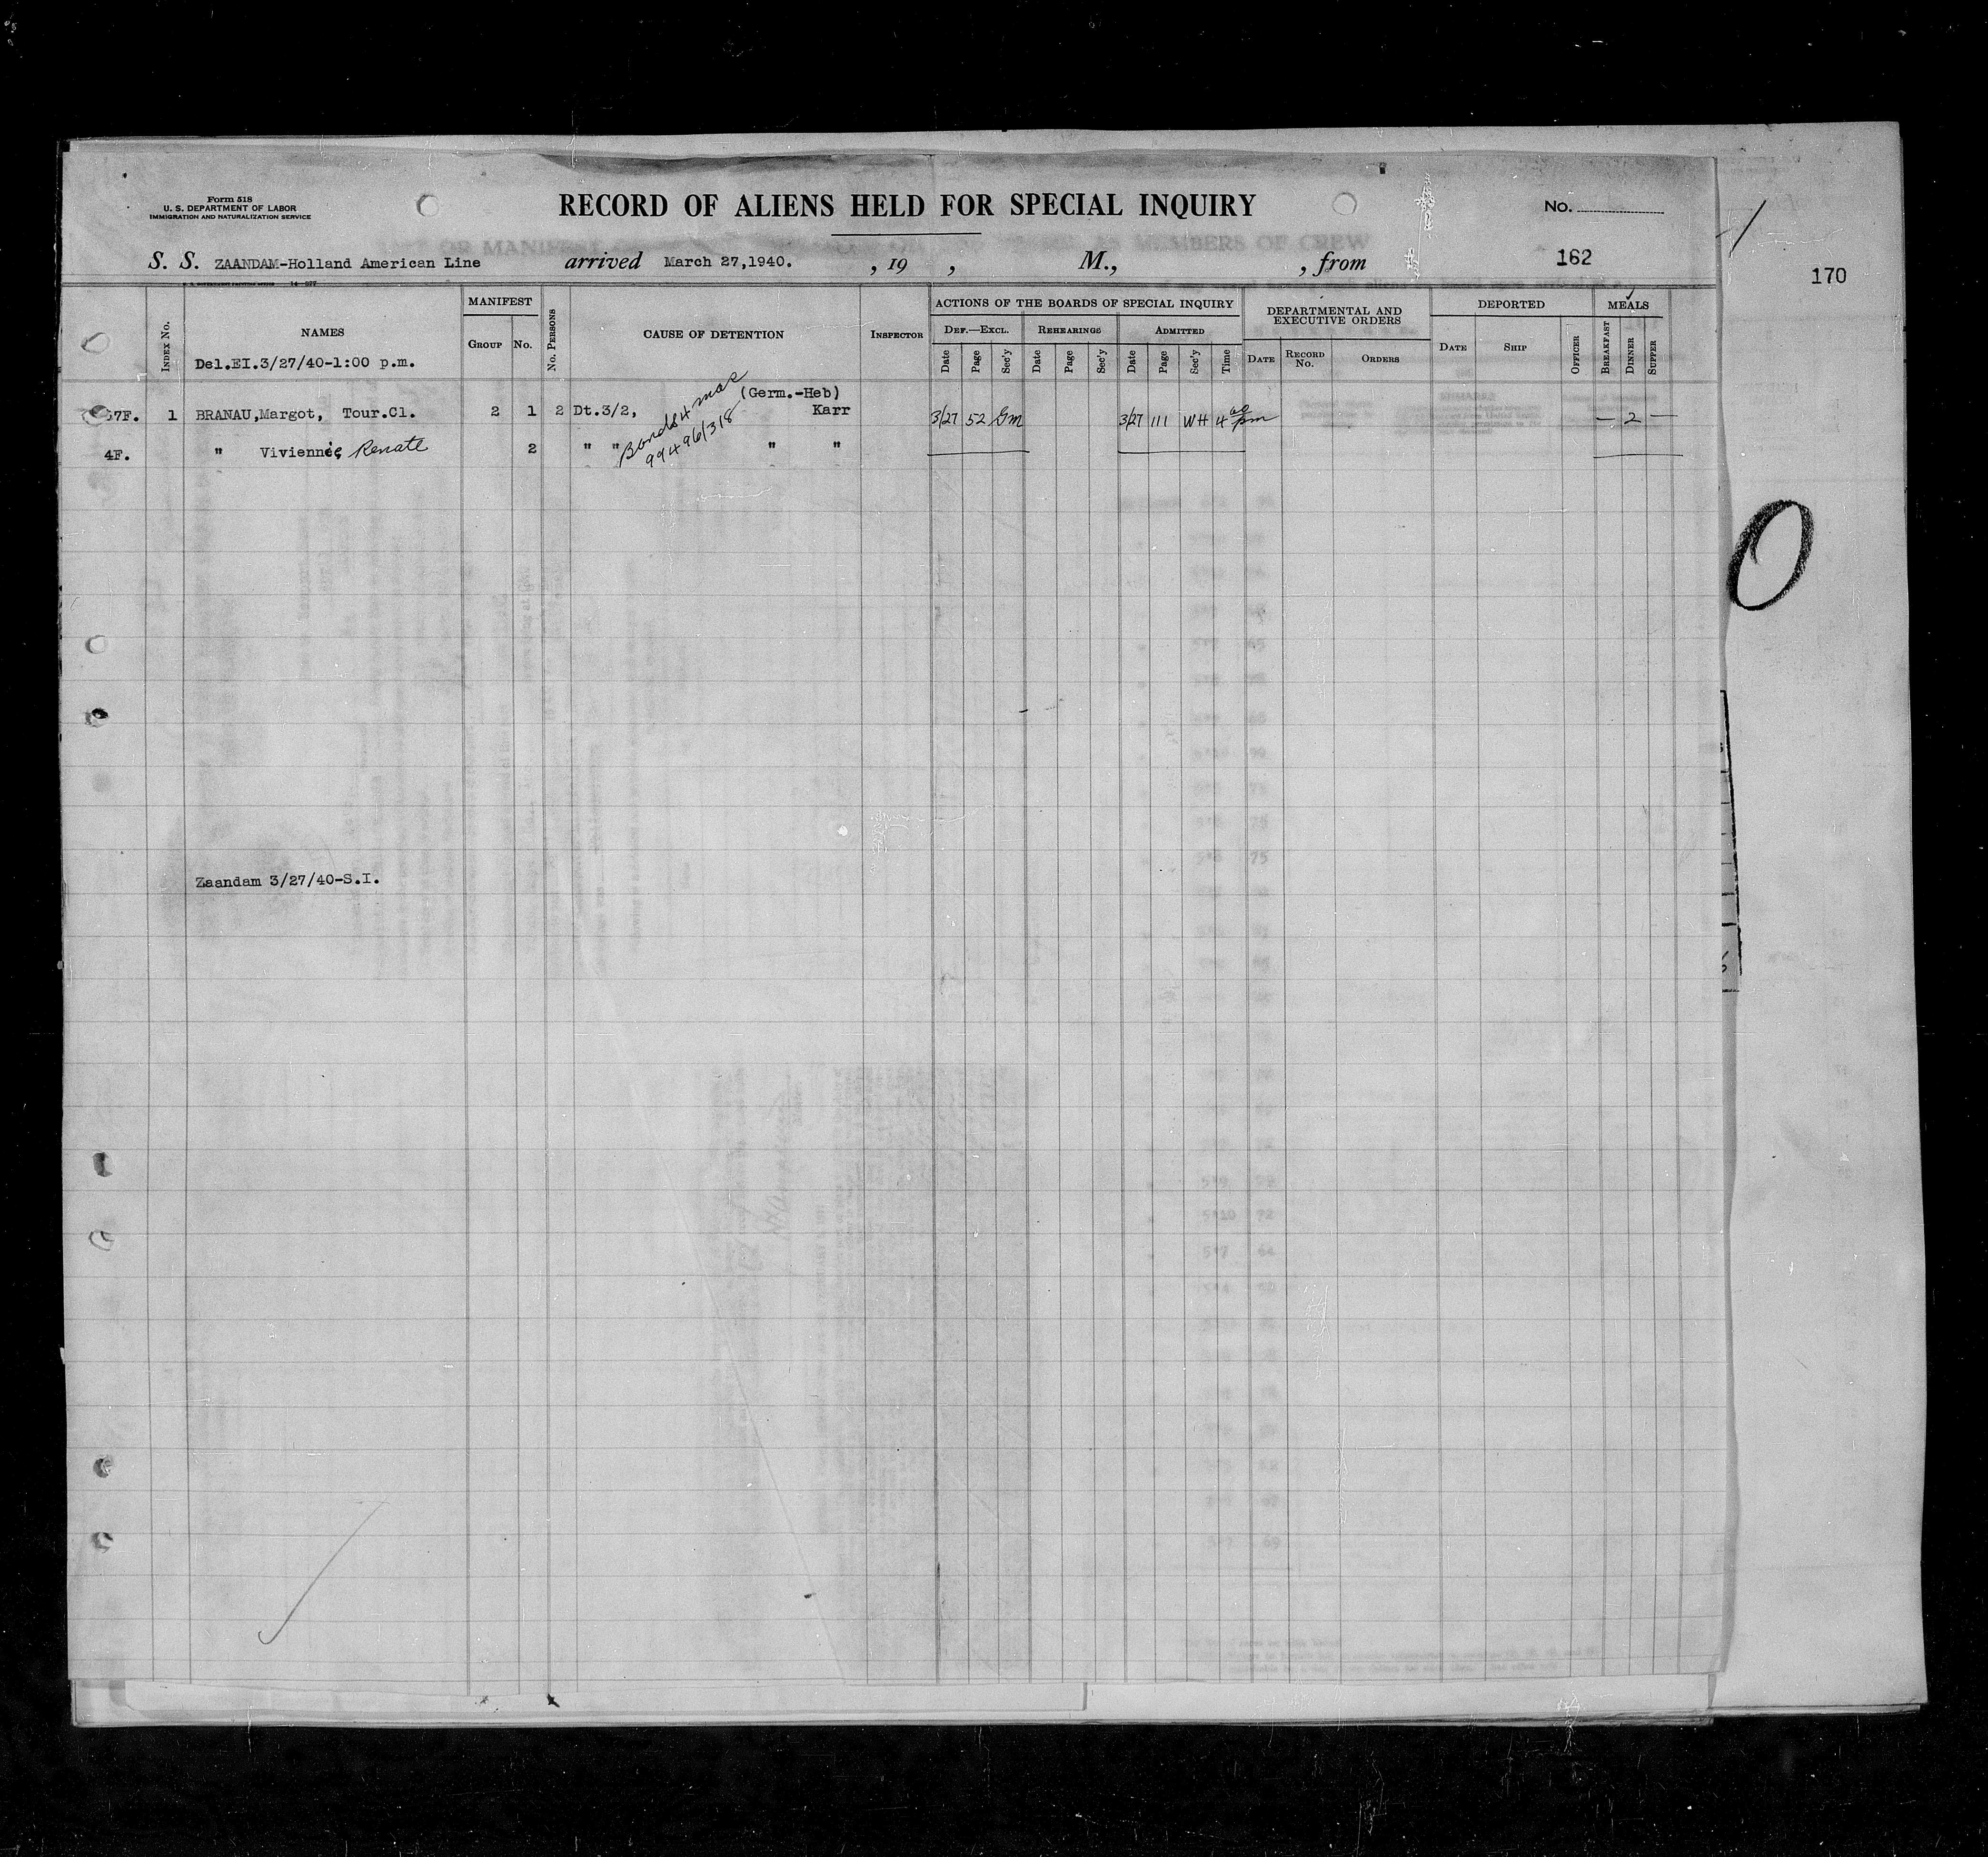 Form 518
U. S. DEPARTMENT OF LABOR
IMMIGRATION AND NATURALIZATION SERVICE
RECORD OF ALIENS HELD FOR SPECIAL INQUIRY
No.
S. S. ZAANDAM-Holland American Line arrived March 27,1940. , 19 , M., , from 162
170
INDEX No.
NAMES
Del.EI.3/27/40-1:00 p.m.
MANIFEST
GROUP No.
No. PERSONS
CAUSE OF DETENTION
INSPECTOR
ACTIONS OF THE BOARDS OF SPECIAL INQUIRY
DEF.—EXCL. REHEARINGS ADMITTED
Date Page Sec'y Date Page Sec'y Date Page Sec'y Time
DEPARTMENTAL AND EXECUTIVE ORDERS
DATE RECORD No. ORDERS
DEPORTED
DATE SHIP OFFICER
MEALS
BREAKFAST DINNER SUPPER
(Germ.-Heb)
7F. 1 BRANAU,Margot, Tour.Cl. 2 1 2 Dt.3/2, Karr 3/27 52 GM 3/27 111 WH 4 00 pm — 2 —
4F. " Viviennie, Renate 2 " " " "
Bonds 4 mos
99496/318
Zaandam 3/27/40-S.I.